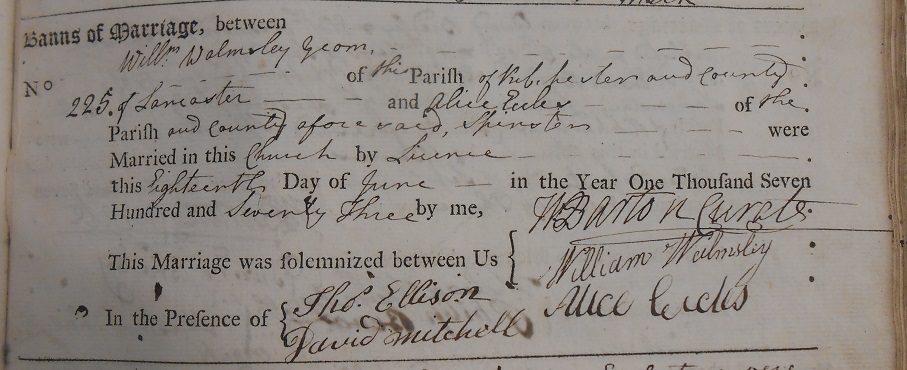 Banns of Marriage, between
Willm Walmsley Yeom,
No of this Parish of Ribchester and County
225. of Lancaster and Alice Eccles of the
Parish and County aforesaid, Spinster were
Married in this Church by Licence
this Eighteenth Day of June in the Year One Thousand Seven
Hundred and Seventy Three by me, W Barton Curate
This Marriage was solemnized between Us William Walmsley
Alice Eccles
In the Presence of Thos. Ellison
David Mitchell